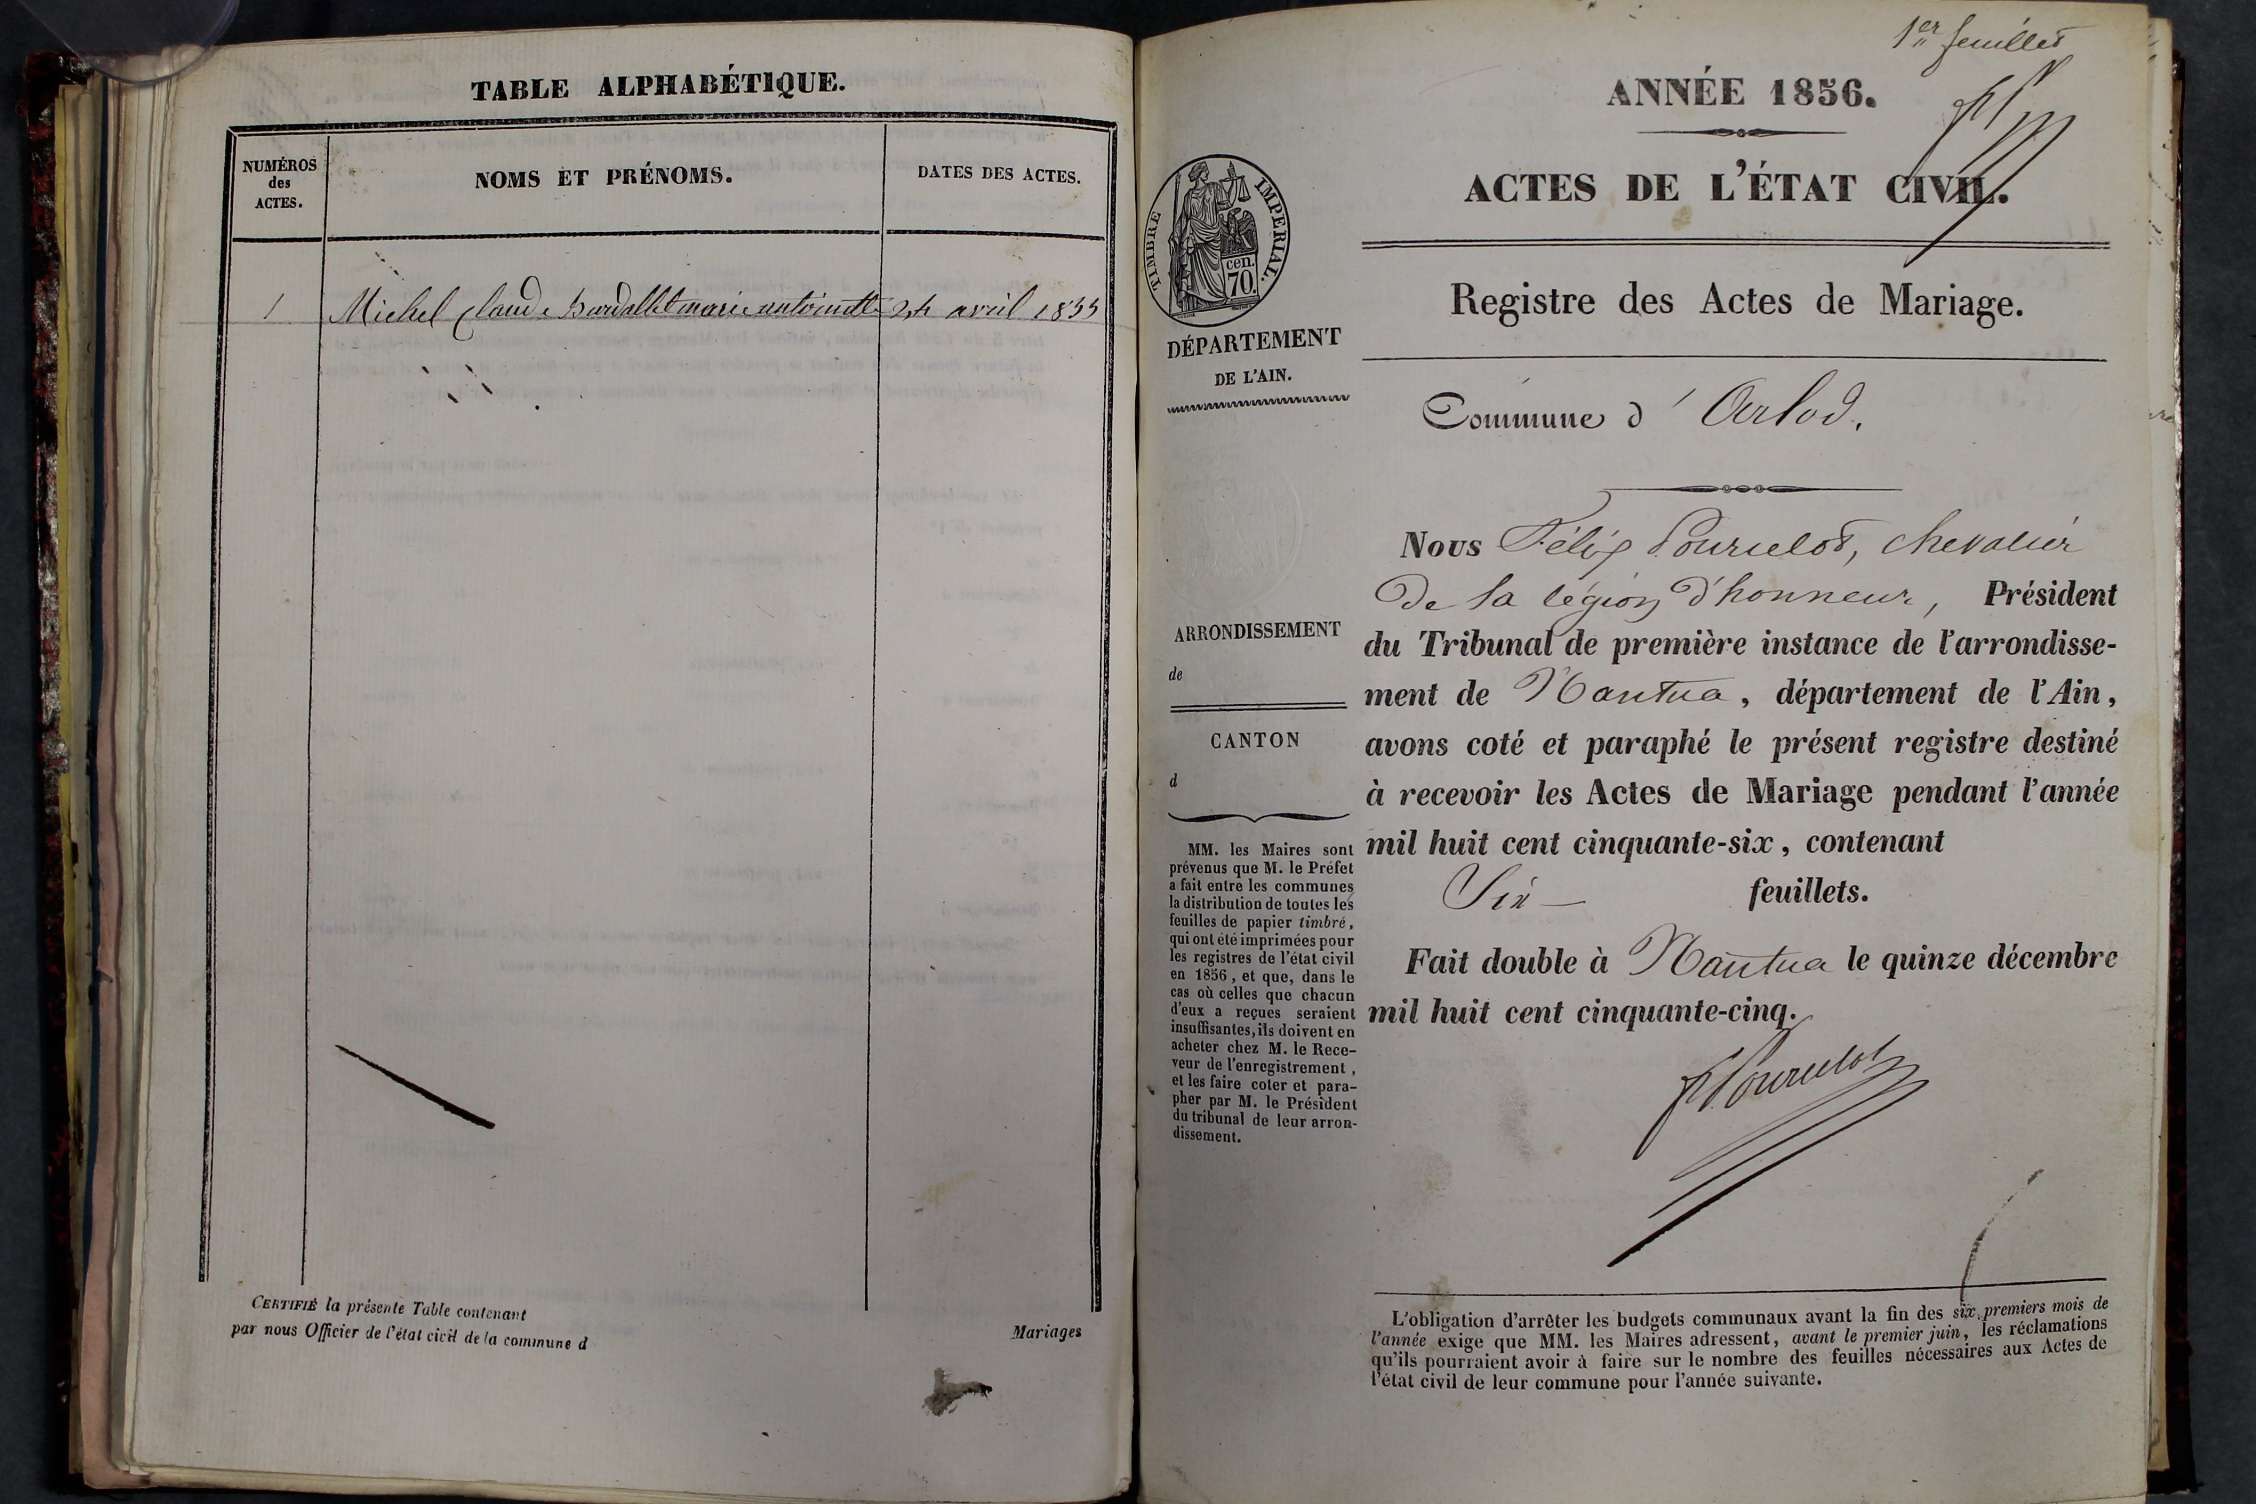 TABLE ALPHABÉTIQUE.
NUMÉROS
des
ACTES.
NOMS ET PRÉNOMS.
DATES DES ACTES.
1 Michel Claude Burdallet marie antoinette 24 avril 1855
CERTIFIÉ la présente Table contenant
par nous Officier de l'état civil de la commune d
Mariages
1er feuillet
ANNÉE 1856.
ACTES DE L'ÉTAT CIVIL.
TIMBRE IMPERIAL.
cen.
70.
DÉPARTEMENT
DE L'AIN.
Registre des Actes de Mariage.
Commune d'Arlod.
ARRONDISSEMENT
de
CANTON
d
MM. les Maires sont
prévenus que M. le Préfet
a fait entre les communes
la distribution de toutes les
feuilles de papier timbré,
qui ont été imprimées pour
les registres de l'état civil
en 1856, et que, dans le
cas où celles que chacun
d'eux a reçues seraient
insuffisantes, ils doivent en
acheter chez M. le Rece-
veur de l'enregistrement,
et les faire coter et para-
pher par M. le Président
du tribunal de leur arron-
dissement.
Nous Félix Pourcelot, chevalier
De la légion d'honneur, Président
du Tribunal de première instance de l'arrondisse-
ment de Nantua, département de l'Ain,
avons coté et paraphé le présent registre destiné
à recevoir les Actes de Mariage pendant l'année
mil huit cent cinquante-six, contenant
Six feuillets.
Fait double à Nantua le quinze décembre
mil huit cent cinquante-cinq.
F Pourcelot
L'obligation d'arrêter les budgets communaux avant la fin des six premiers mois de
l'année exige que MM. les Maires adressent, avant le premier juin, les réclamations
qu'ils pourraient avoir à faire sur le nombre des feuilles nécessaires aux Actes de
l'état civil de leur commune pour l'année suivante.